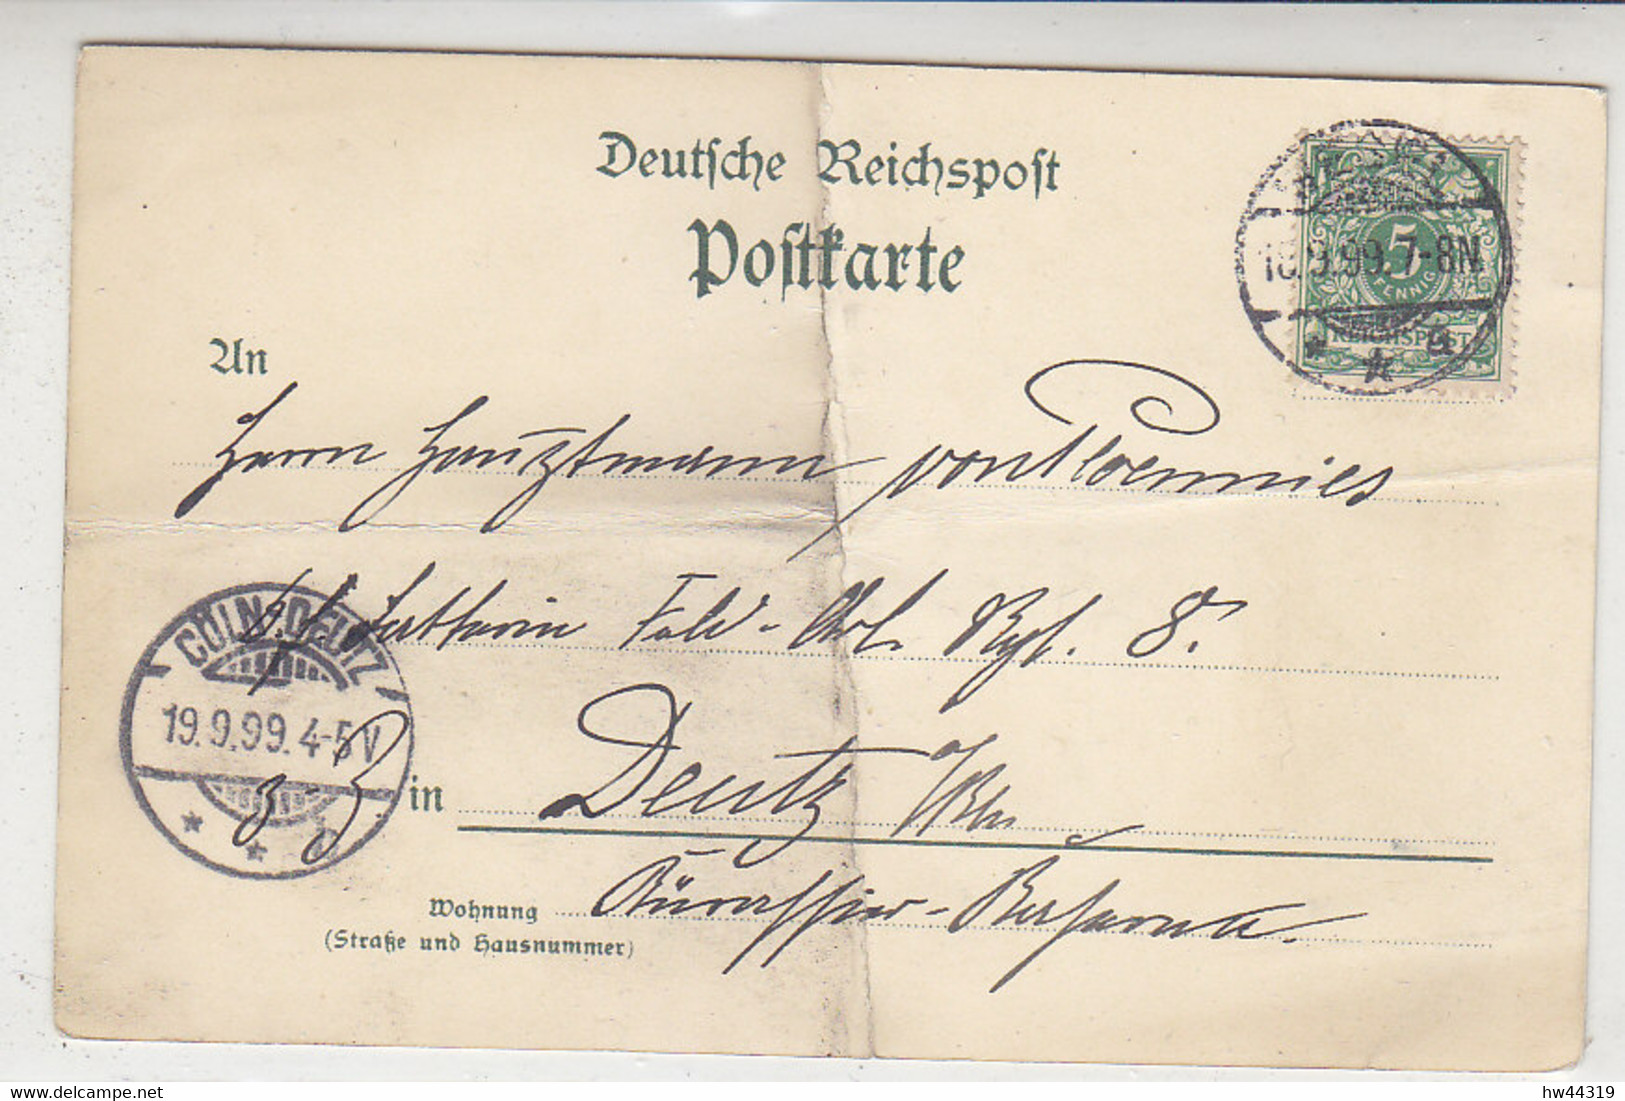 Deutsche Reichspost
Postkarte
18.9.99.7-8N.
5
PFENNIG
REICHSPOST
* * a
An
Herrn Hauptmann von Ploennies
Feld-Art. Rgt. 8.
CÖLN-DEUTZ
19.9.99.4-5V
* *
z. Z. in Deutz a/Rhn
Wohnung Kürassier-Kaserne.
(Straße und Hausnummer)
hw44319